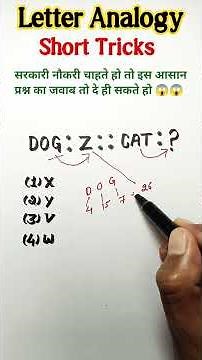 Letter Analogy
Short Tricks
सरकारी नौकरी चाहते हो तो इस आसान
प्रश्न का जवाब तो दे ही सकते हो 😱😱
DOG : Z :: CAT : ?
(1) X
(2) Y
(3) V
(4) W
D O G
4 15 7 26